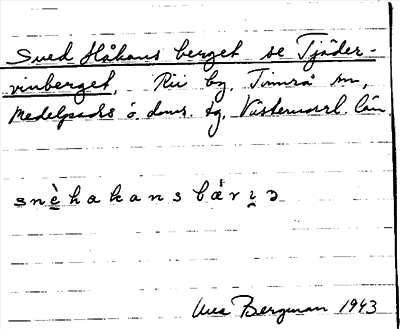 Sved Håkans berget se Tjäder-
vinberget, Rii by, Timrå sn,
Medelpads ö. doms. sg, Västernorrl. län
snèhakansbærịɔ
Bergman 1943